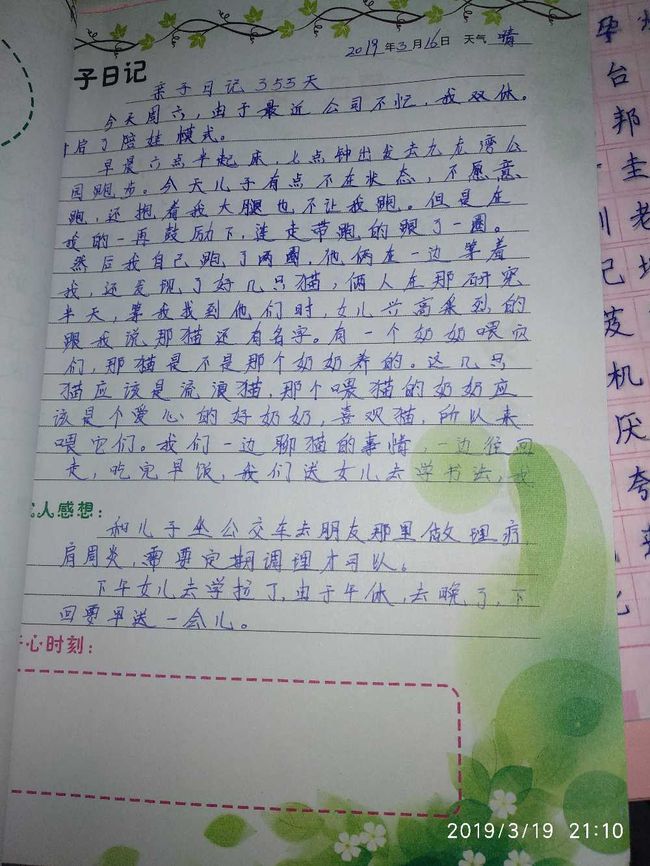 2019年3月16日 天气 晴
子日记
亲子日记355天
今天周六，由于最近公司不忙，我双休。
启了陪娃模式。
早晨六点半起床，七点钟出发去九龙湾公
园跑步。今天儿子有点不在状态，不愿意
跑，还抱着我大腿也不让我跑。但是在
我的一再鼓励下，连走带跑的跟了一圈。
然后我自己跑了两圈，他俩在一边等着
我，还发现了好几只猫，俩人在那研究
半天，等我找到他们时，女儿兴高采烈的
跟我说那猫还有名字。有一个奶奶喂它
们，那猫是不是那个奶奶养的。这几只
猫应该是流浪猫，那个喂猫的奶奶应
该是个爱心的好奶奶，喜欢猫，所以来
喂它们。我们一边聊猫的事情，一边往回
走，吃完早饭，我们送女儿去学书法，我
人感想：
和儿子坐公交车去朋友那里做理疗
肩周炎，需要定期调理才可以。
下午女儿去学拉丁，由于午休，去晚了，下
回要早送一会儿。
心时刻：
孕
台
邦
圭
老
记
笈
机
厌
夸
2019/3/19 21:10